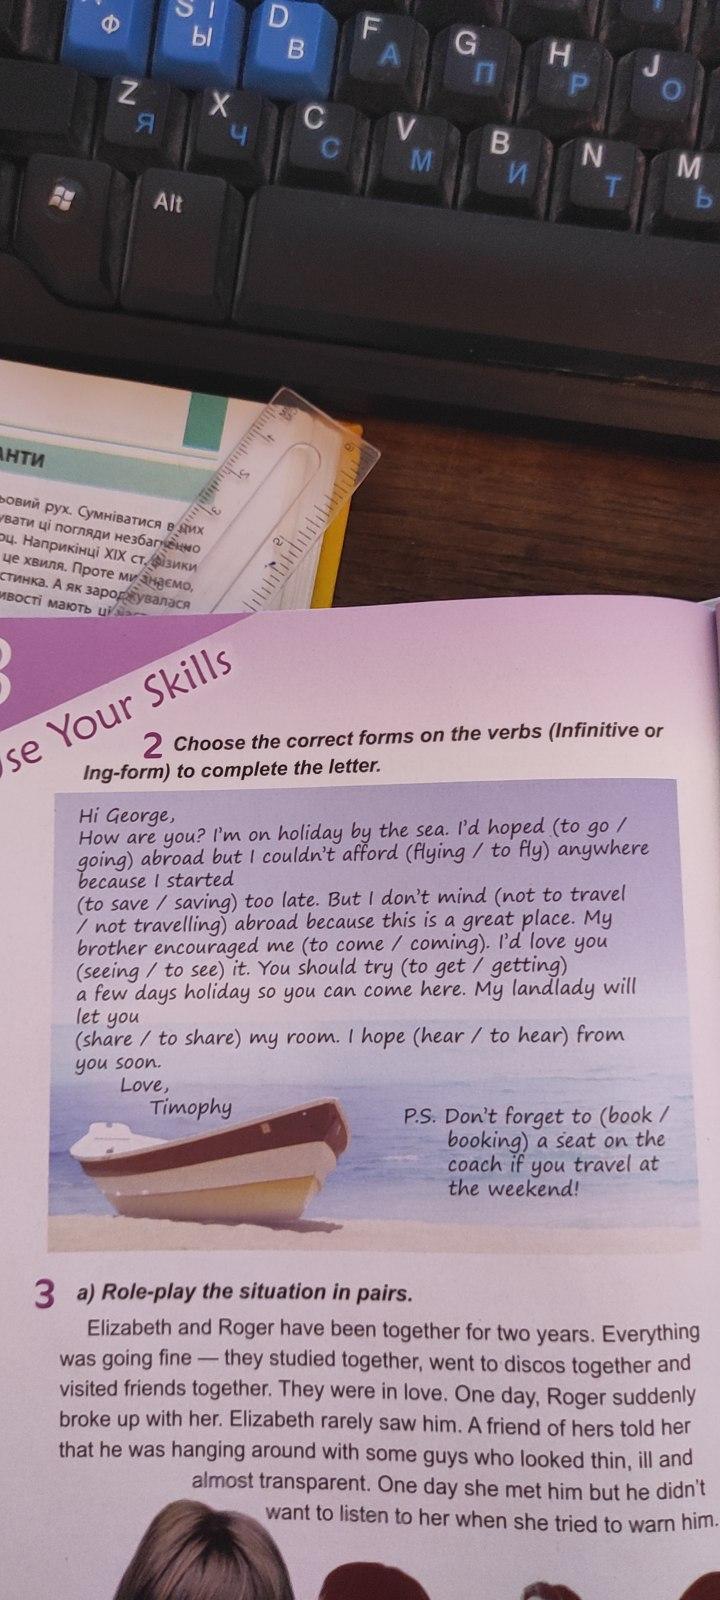 Ф
S І Ы
D В
F А
G П
H Р
J О
Z Я
X Ч
C С
V М
B И
N Т
M Ь
Alt
АНТИ
ьовий рух. Сумніватися в них
увати ці погляди незбагненно
оц. Наприкінці XIX ст. фізики
це хвиля. Проте ми знаємо,
стинка. А як зароджувалася
ивості мають ці
3
se Your Skills
2 Choose the correct forms on the verbs (Infinitive or
Ing-form) to complete the letter.
Hi George,
How are you? I'm on holiday by the sea. I'd hoped (to go /
going) abroad but I couldn't afford (flying / to fly) anywhere
because I started
(to save / saving) too late. But I don't mind (not to travel
/ not travelling) abroad because this is a great place. My
brother encouraged me (to come / coming). I'd love you
(seeing / to see) it. You should try (to get / getting)
a few days holiday so you can come here. My landlady will
let you
(share / to share) my room. I hope (hear / to hear) from
you soon.
Love,
Timophy
P.S. Don't forget to (book /
booking) a seat on the
coach if you travel at
the weekend!
3 a) Role-play the situation in pairs.
Elizabeth and Roger have been together for two years. Everything
was going fine — they studied together, went to discos together and
visited friends together. They were in love. One day, Roger suddenly
broke up with her. Elizabeth rarely saw him. A friend of hers told her
that he was hanging around with some guys who looked thin, ill and
almost transparent. One day she met him but he didn't
want to listen to her when she tried to warn him.